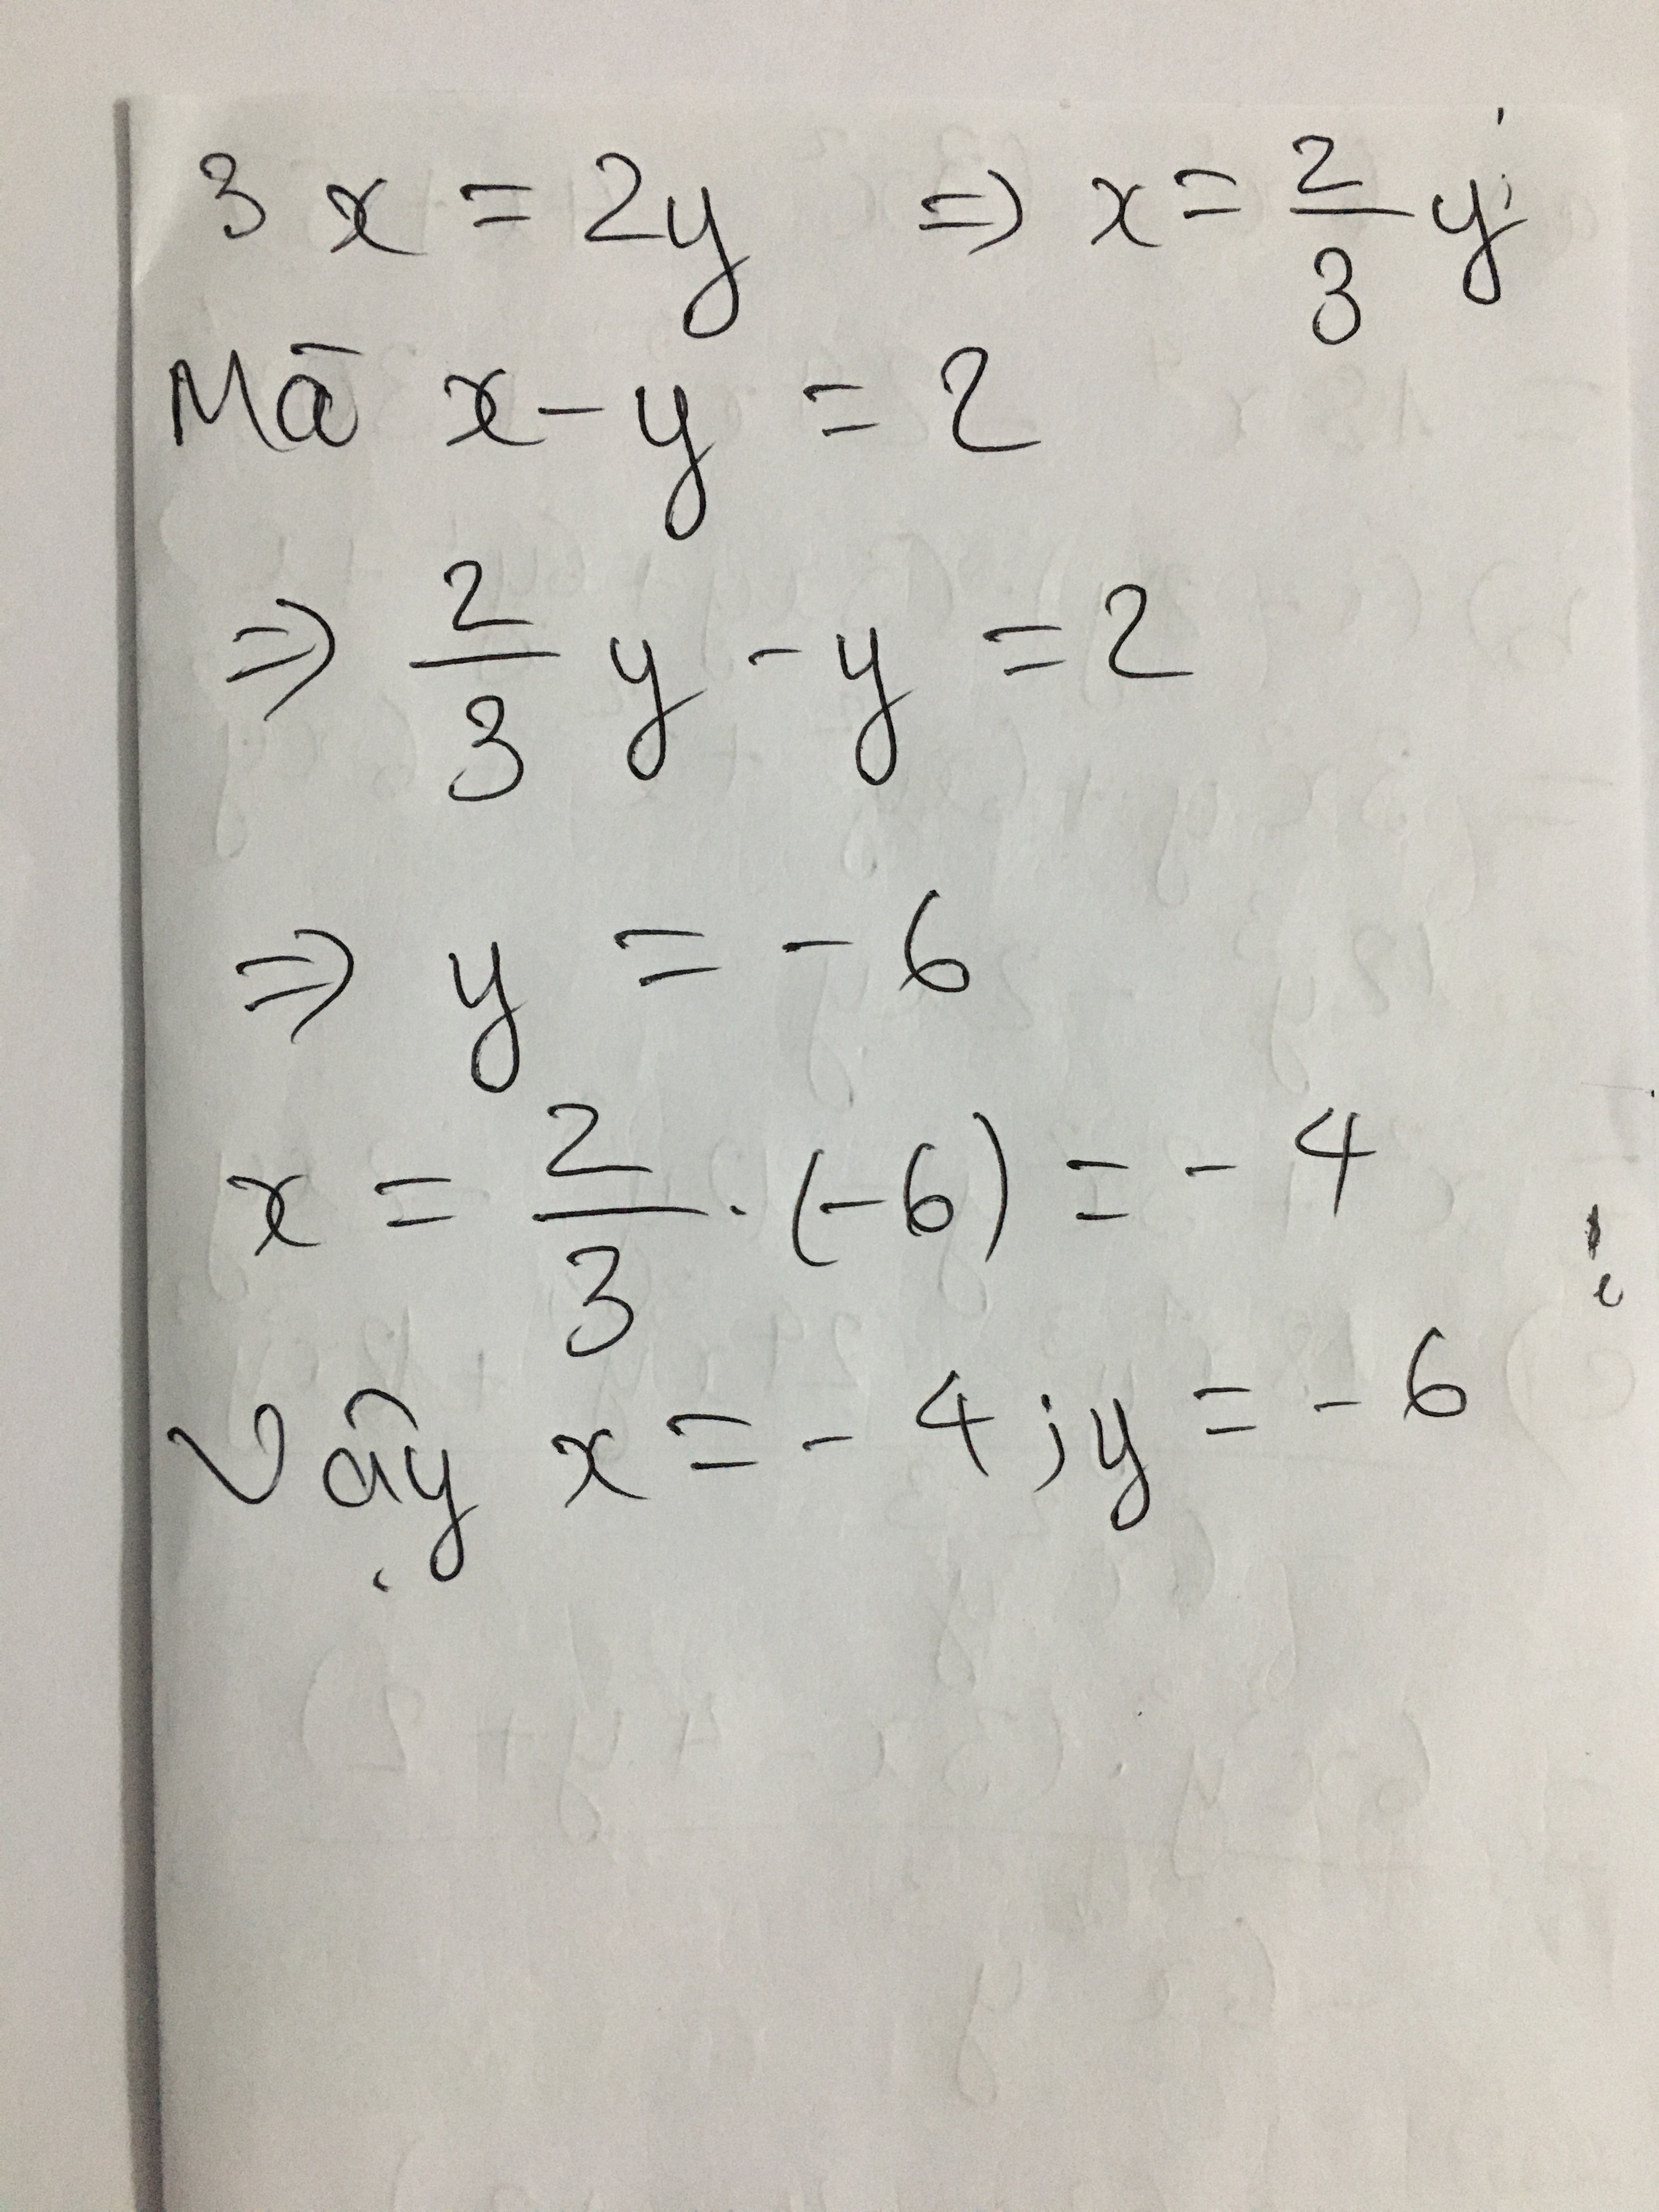 3x = 2y => x = 2/3 y
Mà x - y = 2
=> 2/3 y - y = 2
=> y = -6
x = 2/3 . (-6) = -4
Vậy x = -4 ; y = -6